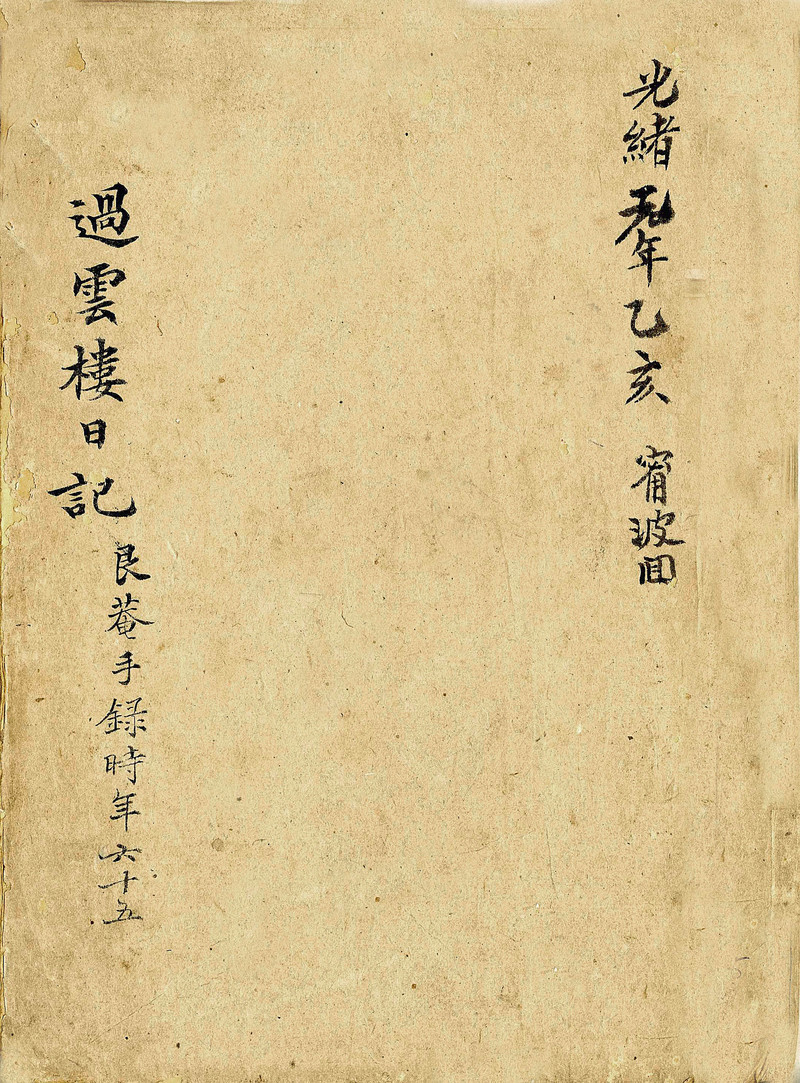 光緒元年乙亥 甯波回
過雲樓日記 艮菴手録時年六十五